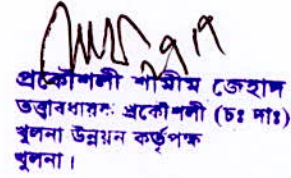 ২৭।৭
প্রকৌশলী শামীম জেহাদ
তত্ত্বাবধায়ক প্রকৌশলী (চঃ দাঃ)
খুলনা উন্নয়ন কর্তৃপক্ষ
খুলনা।